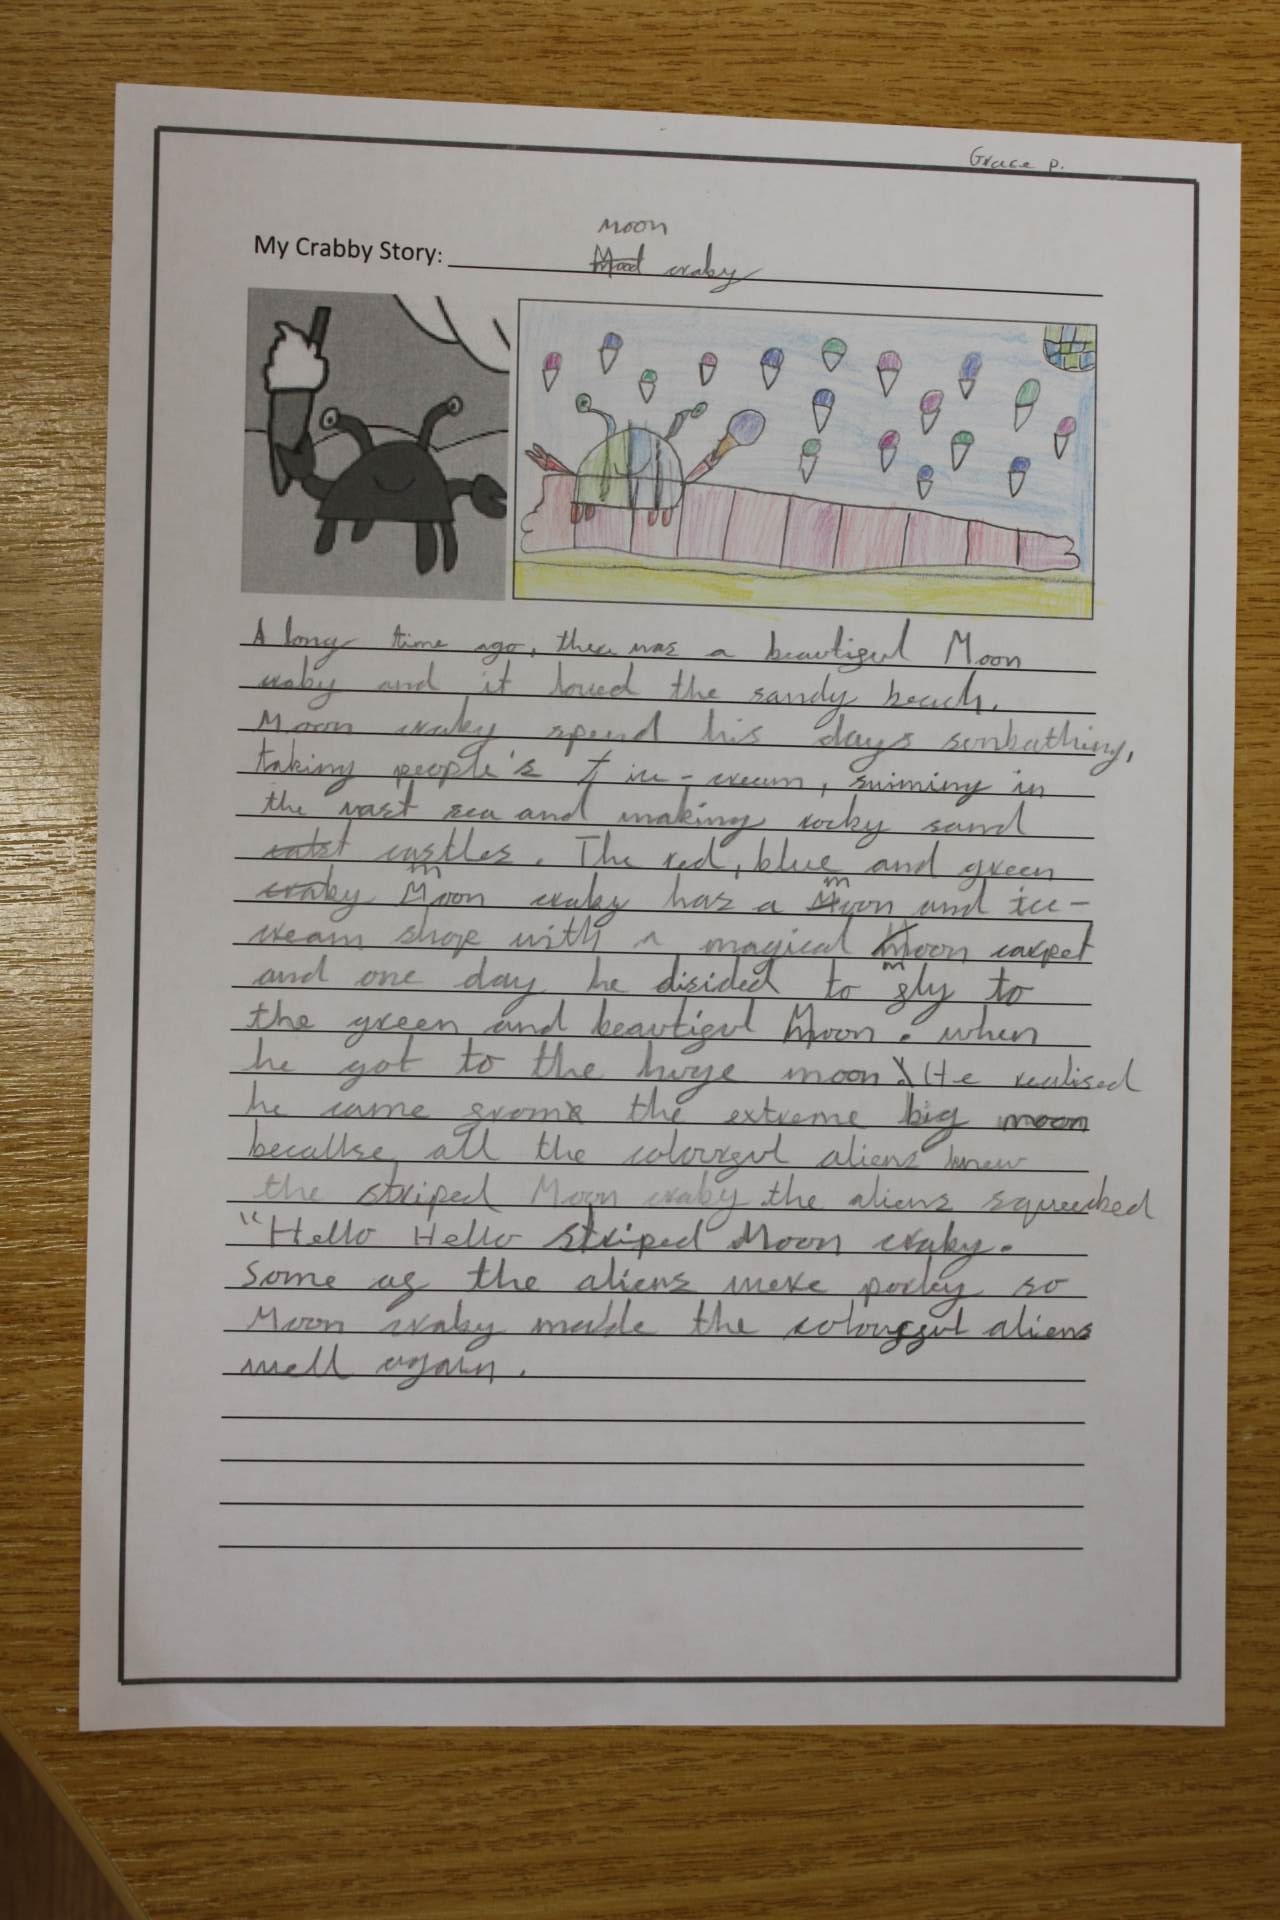 Grace P.
moon
My Crabby Story: Mood craby
A long time ago, there was a beautiful Moon
craby and it loved the sandy beach.
Moon craby spend his days sonbathing,
taking people's ice-cream, swiming in
the vast sea and making rocky sand
catst castles. The red, blue and green
craby Moon craby has a moon and ice-
cream shop with a magical moon carpet
and one day he disided to fly to
the green and beautiful Moon. when
he got to the huge moon. He realised
he came from the extreme big moon
because all the colourful aliens knew
the striped Moon craby the aliens squeeked
"Hello Hello striped Moon craby.
Some of the aliens were porley so
Moon craby made the colourful aliens
well again.